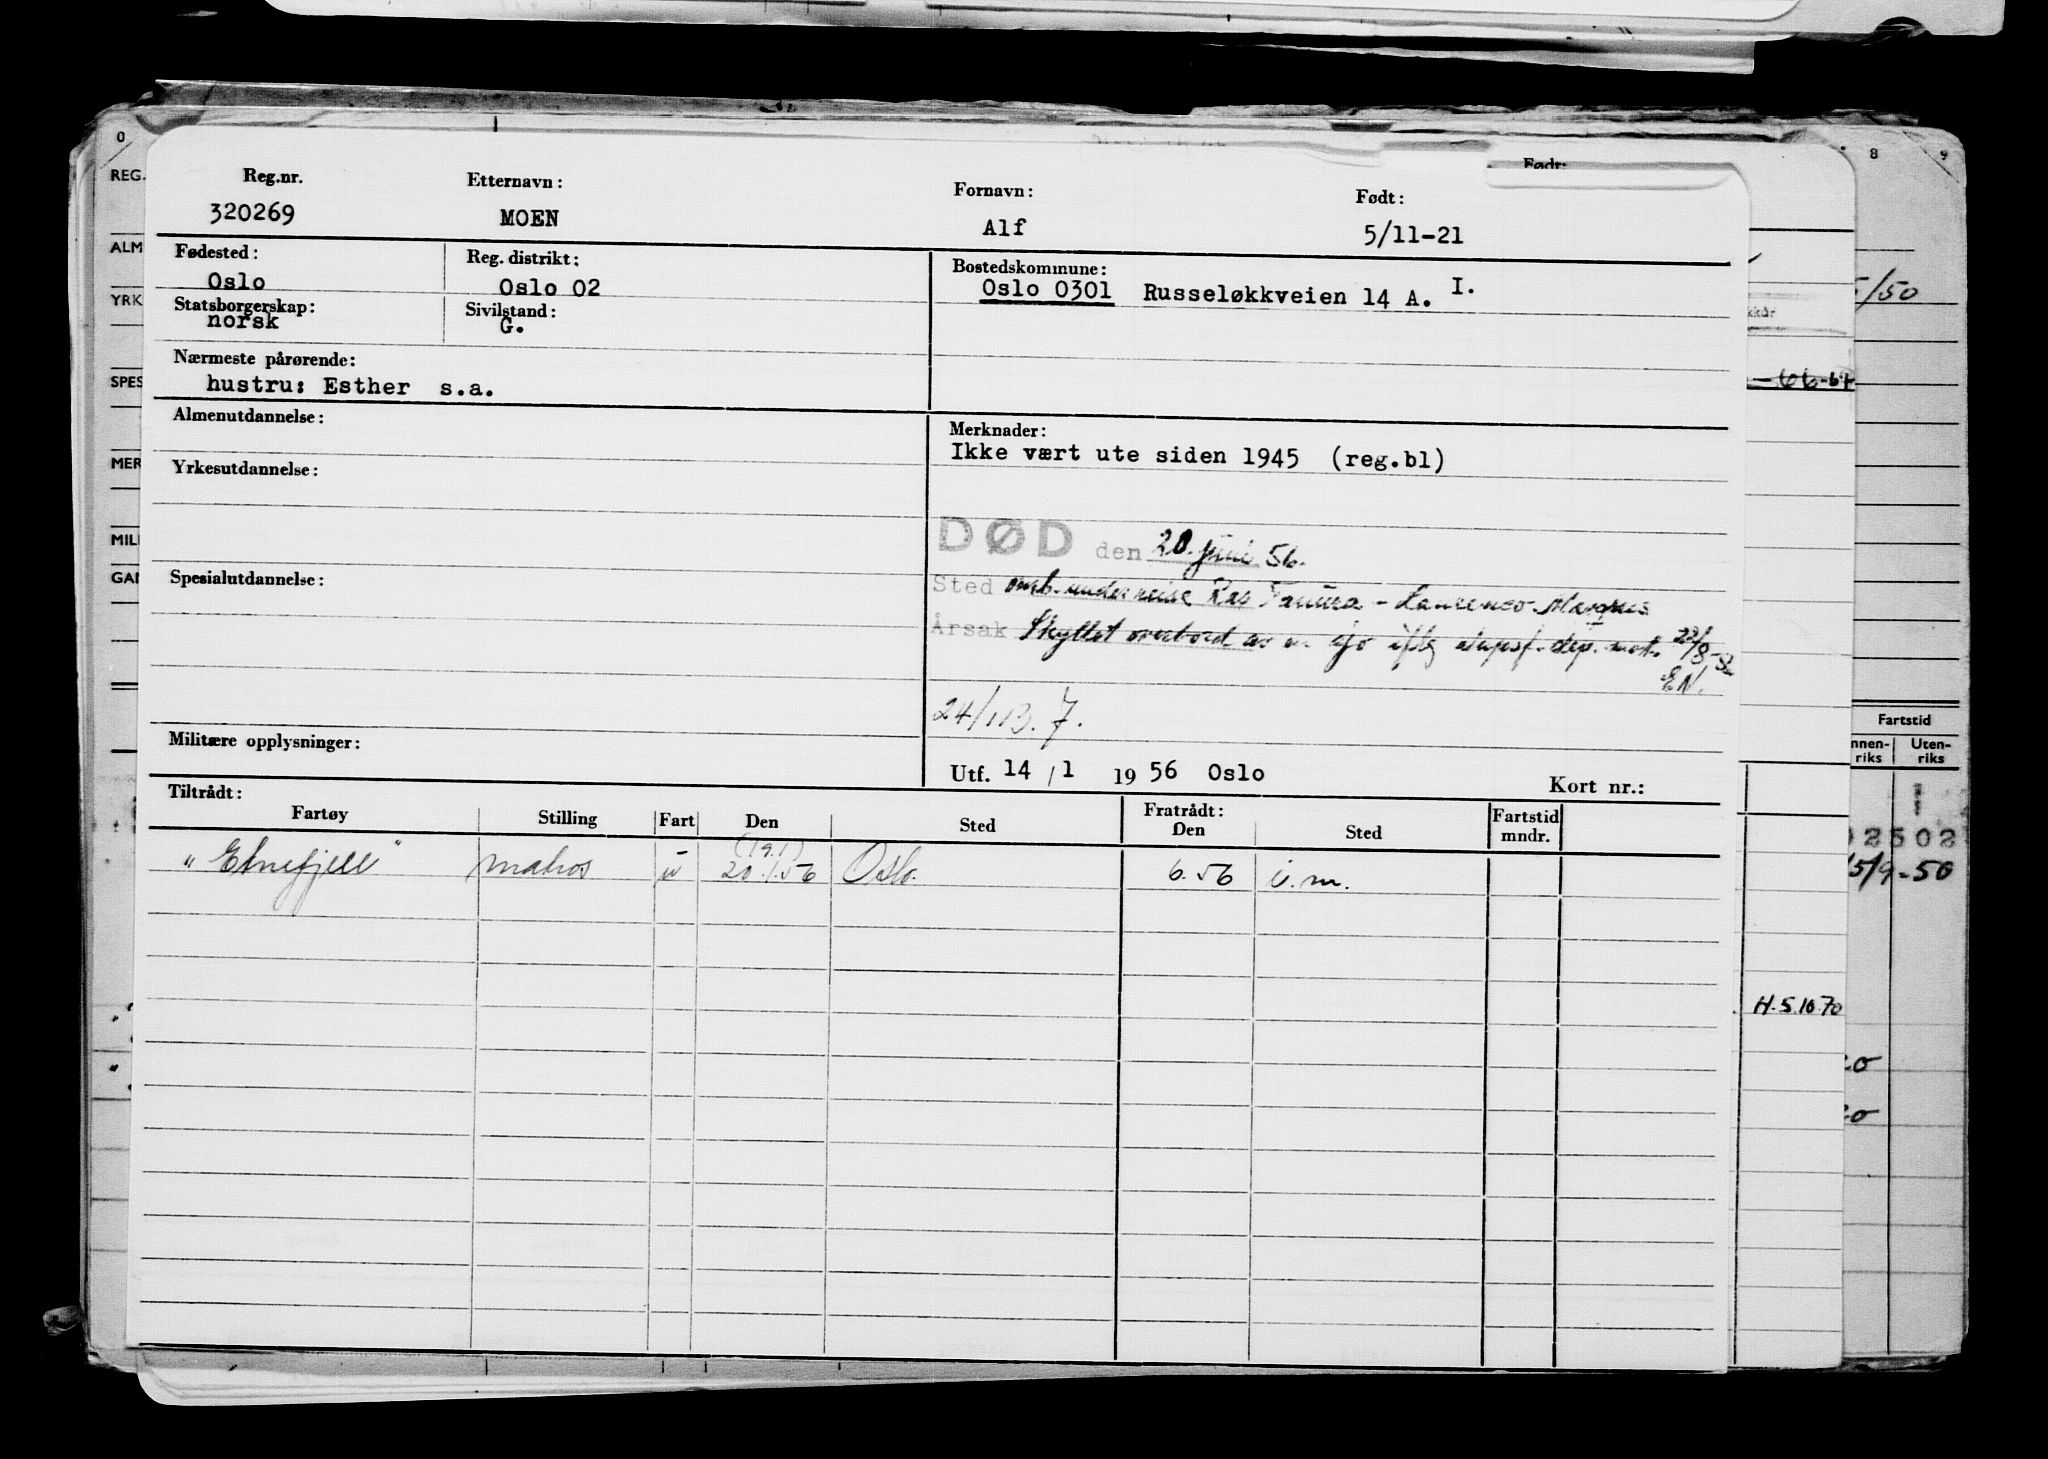 Reg.nr. Etternavn: Fornavn: Født:
320269 MOEN Alf 5/11-21
Fødested: Reg. distrikt: Bostedskommune:
Oslo Oslo 02 Oslo 0301 Russeløkkveien 14 A. I.
Statsborgerskap: Sivilstand:
norsk G.
Nærmeste pårørende:
hustru: Esther s.a.
Almenutdannelse: Merknader:
Ikke vært ute siden 1945 (reg.bl)
Yrkesutdannelse:
DØD den 20. juni 56.
Spesialutdannelse: Sted omb. under reise Ras Tanura - Laurenco Marques
Årsak Skyllet overbord av en sjø iflg dep. mot. 22/8-56
EN.
24/113. 7.
Militære opplysninger:
Utf. 14 / 1 19 56 Oslo Kort nr.:
Tiltrådt: Fratrådt:
Fartøy Stilling Fart Den Sted Den Sted Fartstid mndr.
(19.1)
"Etnefjell" matros u 20.1.56 Oslo. 6.56 i.m.
0 8 9
Født:
REG.
ALM
YRK
SPES
MER
MILI
GAN
5/50
Fartstid
nnen-riks Uten-riks
1
02502
15/9-50
H.5.10.70